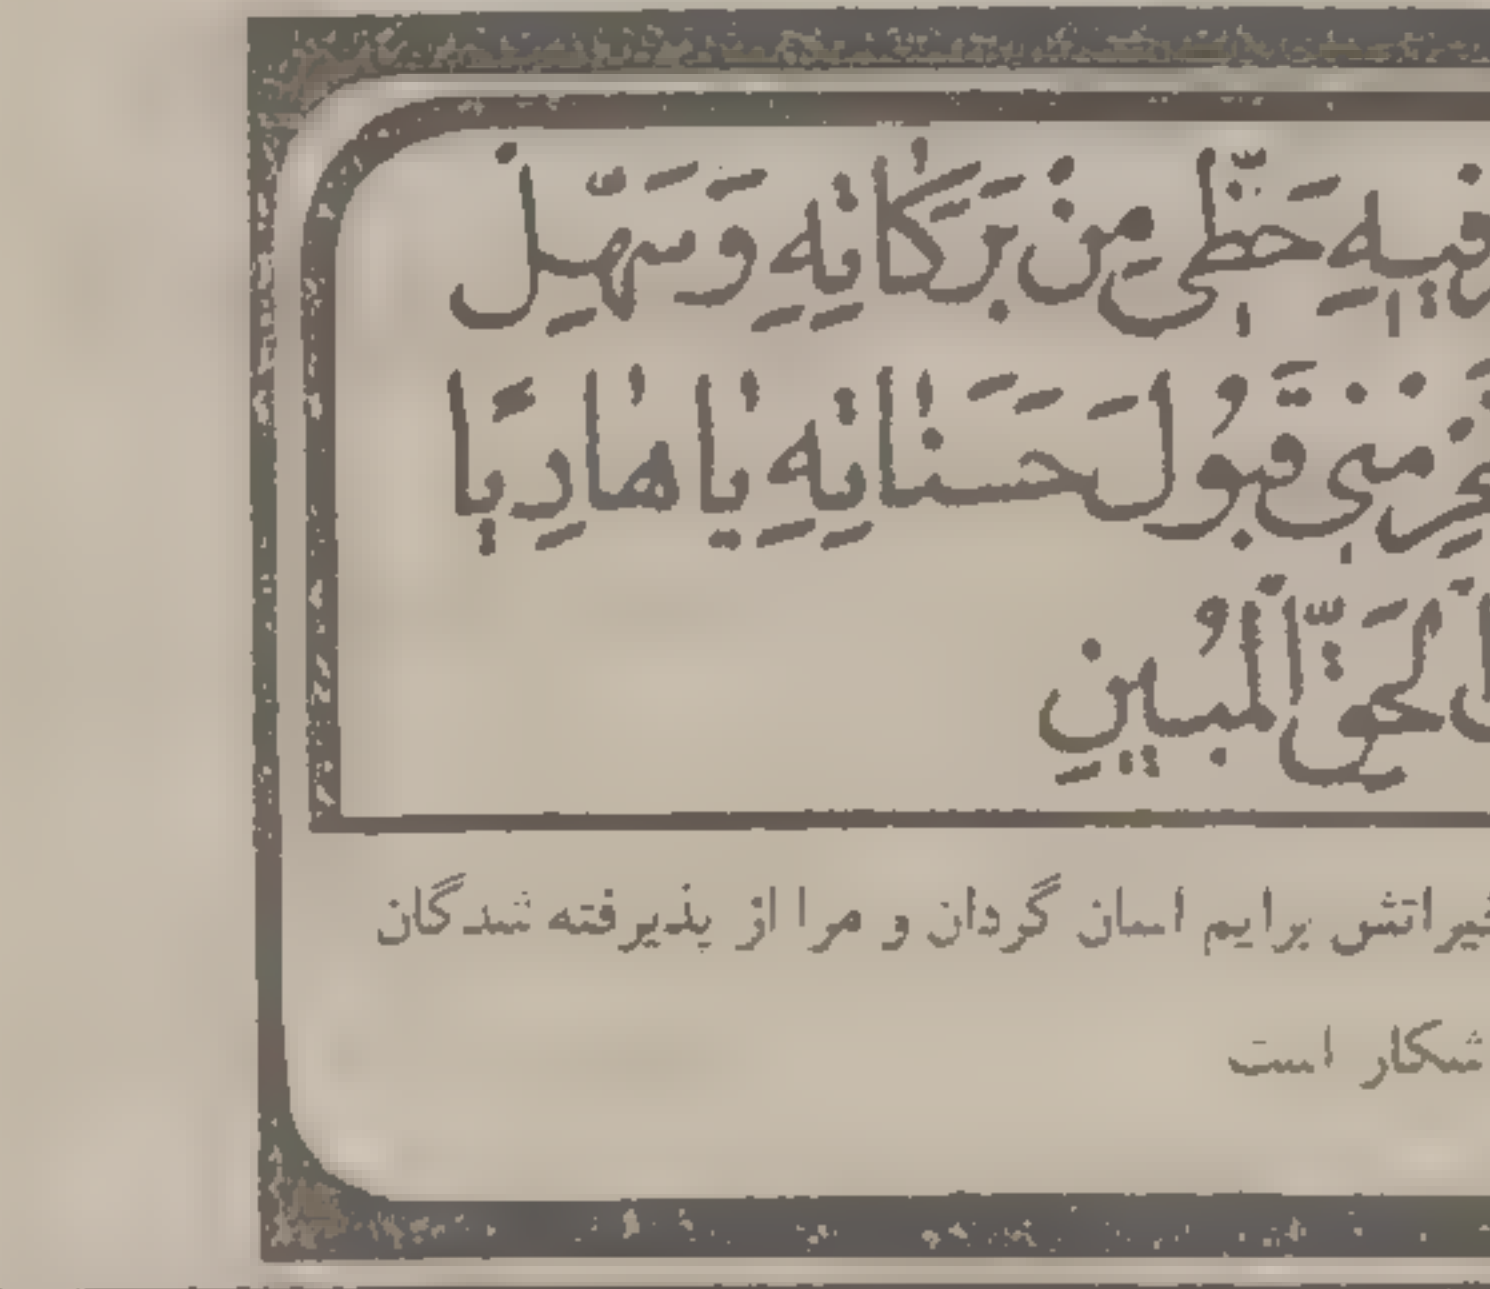 فيهِ حَظّٖي مِنْ بَرَكٰاتِهِ وَسَهِّلْ
مْنٖي قَبُولَ حَسَنٰاتِهِ يٰا هٰادِيًا
الْحَقِّ الْمُبينِ
خیراتش برایم اسان گردان و مرا از پذیرفته شدگان
شکار است